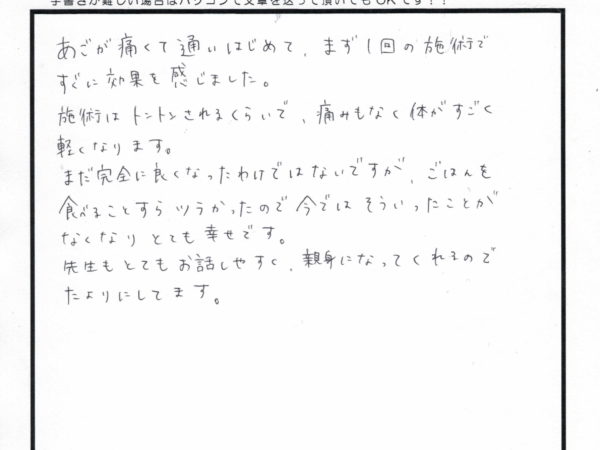 手書きが難しい場合はパソコンで文章を送って頂いてもOKです！！
あごが痛くて通いはじめて、まず1回の施術で
すぐに効果を感じました。
施術はトントンされるくらいで、痛みもなく体がすごく
軽くなります。
まだ完全に良くなったわけではないですが、ごはんを
食べることすらツラかったので今ではそういったことが
なくなりとても幸せです。
先生もとてもお話しやすく、親身になってくれるので
たよりにしてます。